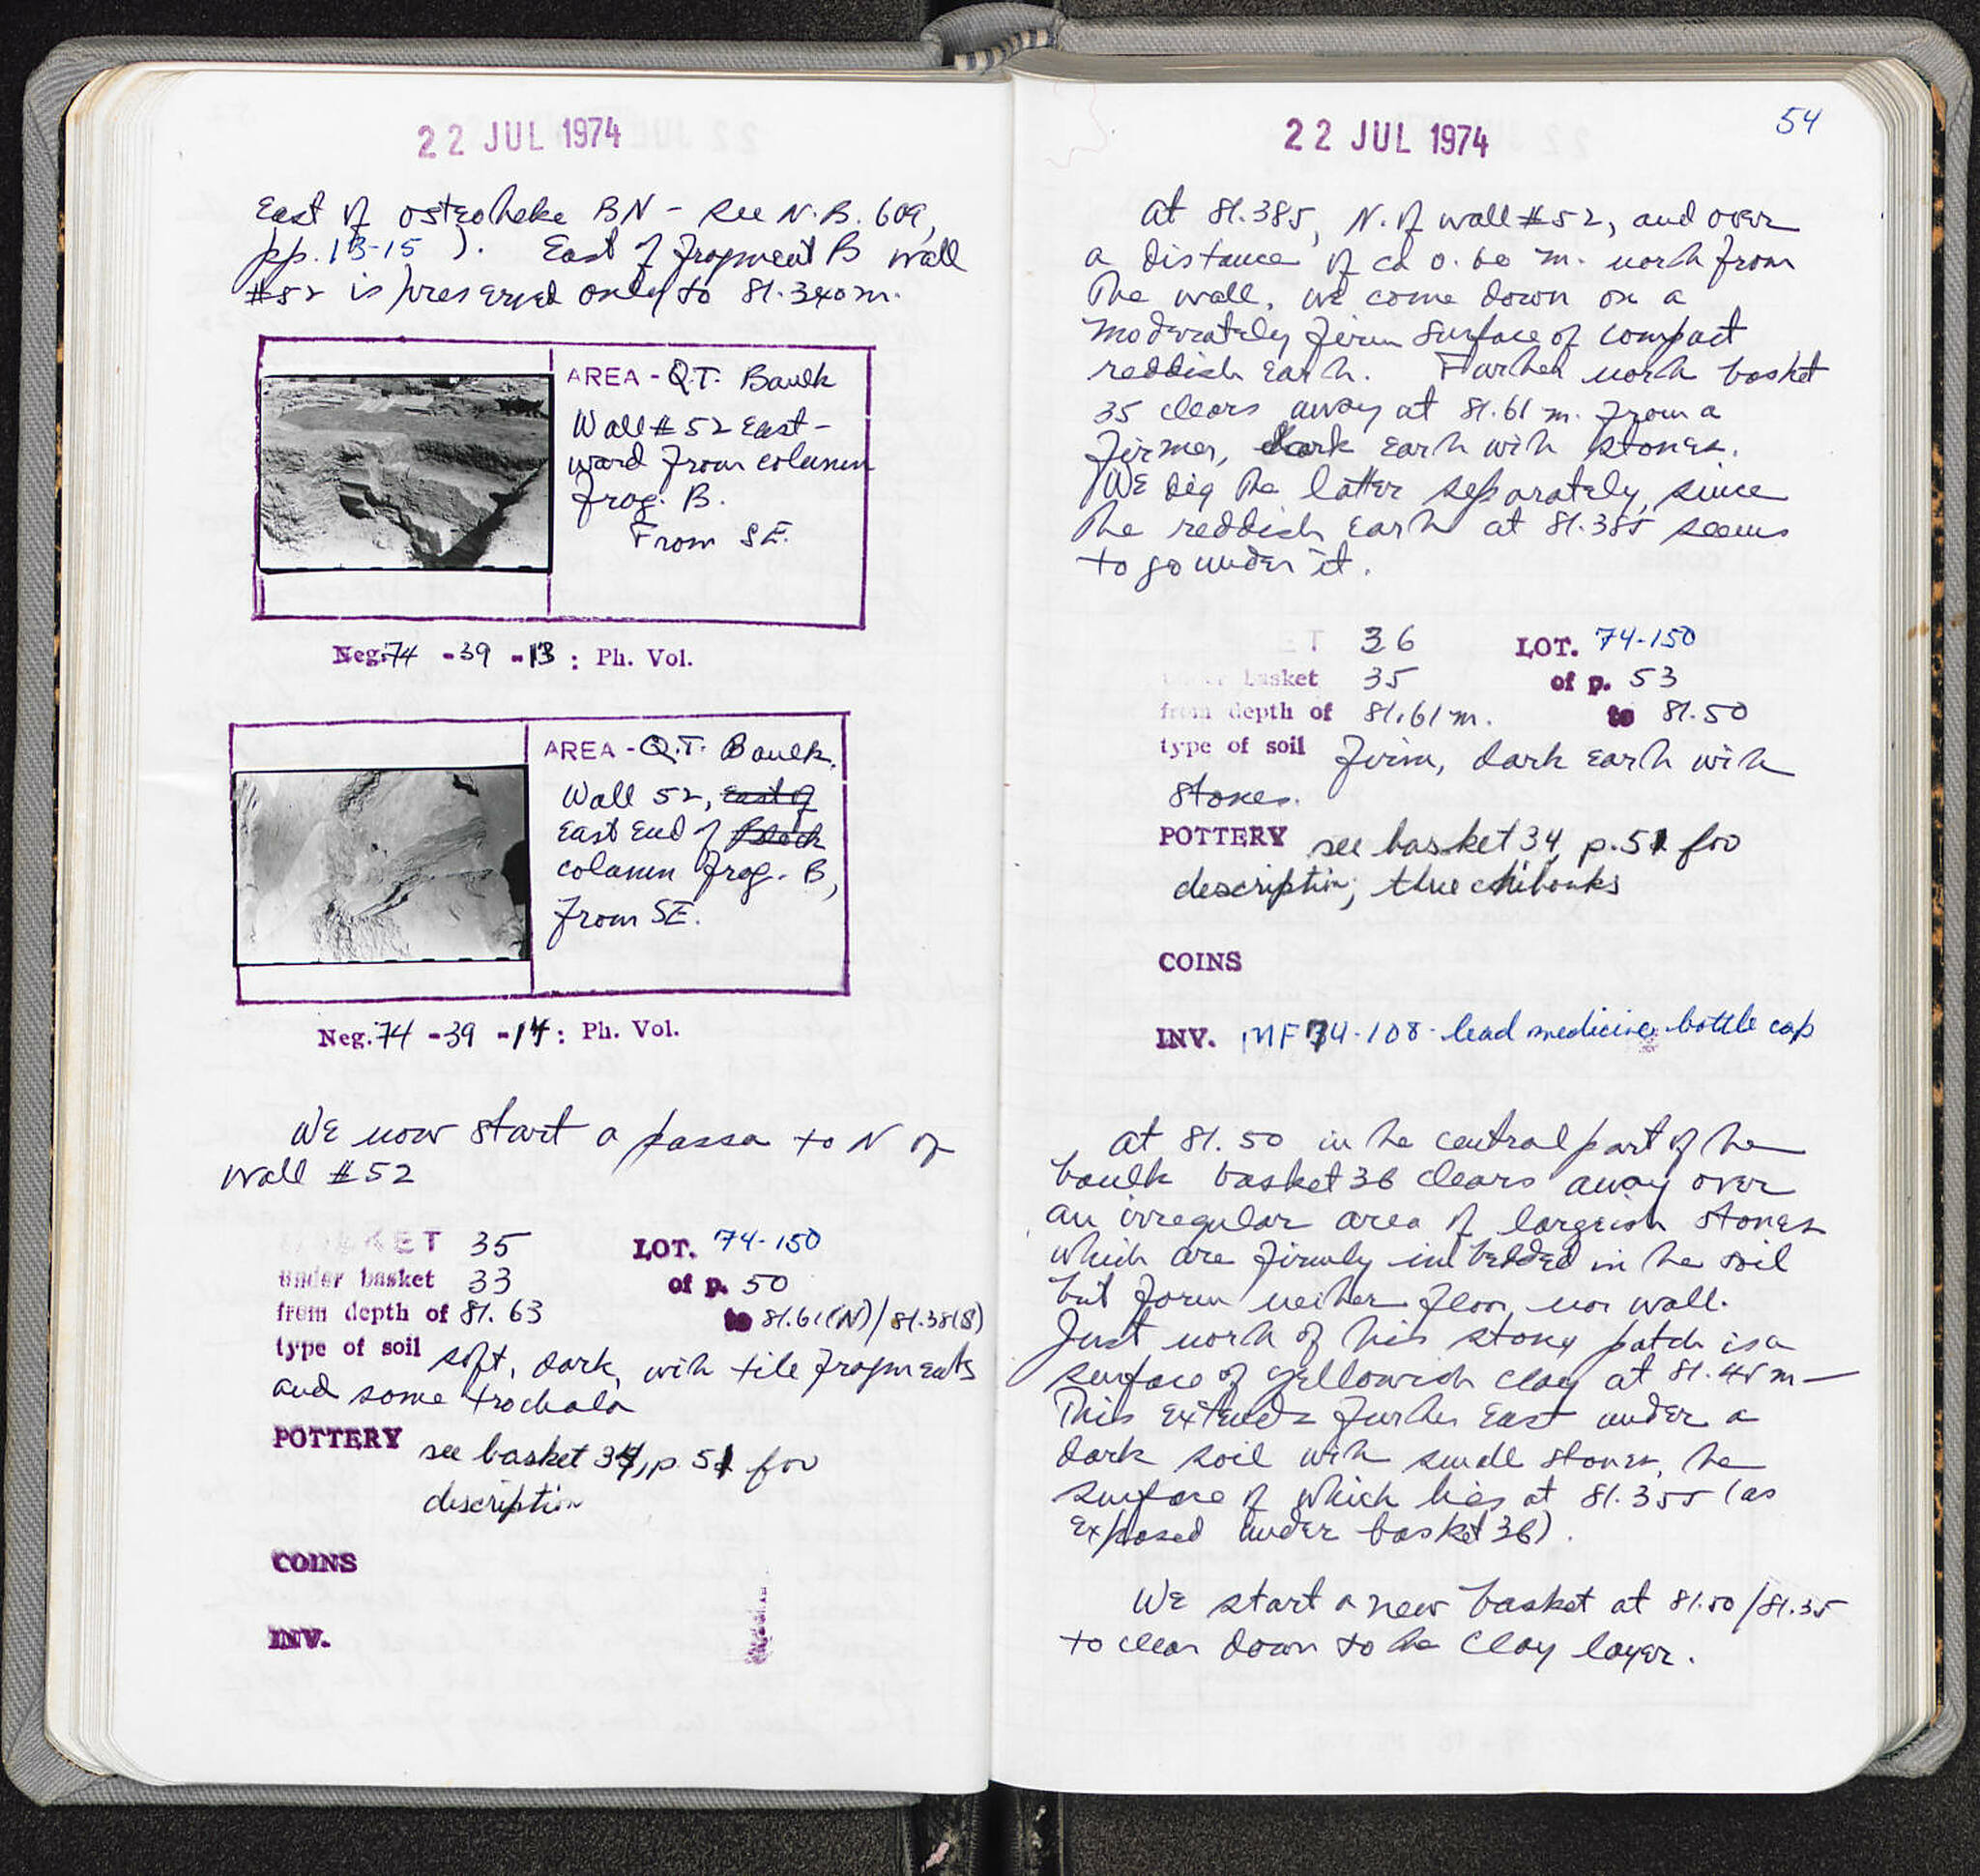 22 JUL 1974
East of osteotheke BN - see N.B. 609,
pp. 13-15 ). East of fragment B wall
#52 is preserved only to 81.340m.
AREA - Q.T. Baulk
Wall #52 East-
ward from column
frag. B.
From SE.
Neg. 74 -39 -13 : Ph. Vol.
AREA - Q.T. Baulk.
Wall 52, East of
East End of Block
column frag. B,
from SE.
Neg. 74 -39 -14 : Ph. Vol.
We now start a passa to N of
Wall #52
BASKET 35 LOT. 74-150
under basket 33 of p. 50
from depth of 81.63 to 81.61(N)/81.38(S)
type of soil soft, dark, with tile fragments
and some trochala
POTTERY see basket 34, p. 51 for
description
COINS
INV.
54
22 JUL 1974
At 81.385, N. of wall #52, and over
a distance of ca 0.60 m. north from
the wall, we come down on a
moderately firm surface of compact
reddish earth. Further north basket
35 clears away at 81.61 m. from a
firmer, dark earth with stones.
We dig the latter separately, since
the reddish earth at 81.385 seems
to go under it.
ET 36 LOT. 74-150
under basket 35 of p. 53
from depth of 81.61m. to 81.50
type of soil firm, dark earth with
stones.
POTTERY see basket 34, p. 51 for
description; three chibouks
COINS
INV. MF 74-108 - lead medicine bottle cap
At 81.50 in the central part of the
baulk basket 36 clears away over
an irregular area of largeish stones
which are firmly imbedded in the soil
but form neither floor, nor wall.
Just north of this stony patch is a
surface of yellowish clay at 81.45m —
This extends further East under a
dark soil with small stones, the
surface of which lies at 81.355 (as
exposed under basket 36).
We start a new basket at 81.50/81.35
to clear down to the clay layer.